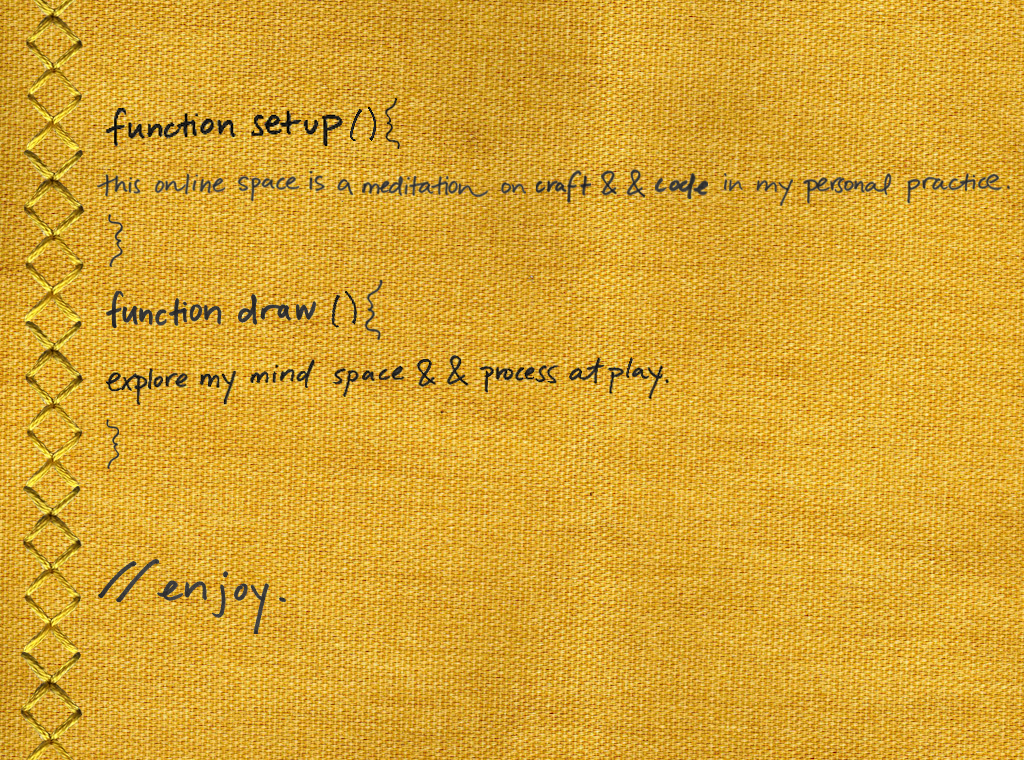 function setup(){
this online space is a meditation on craft & & code in my personal practice.
}
function draw(){
explore my mind space & & process at play.
}
//enjoy.